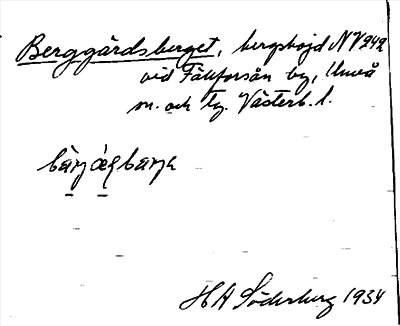 Berggårdsberget, bergshöjd NV242
vid Fällforsån by, Umeå
m. och tg. Västerb. l.
HA Söderberg 1934